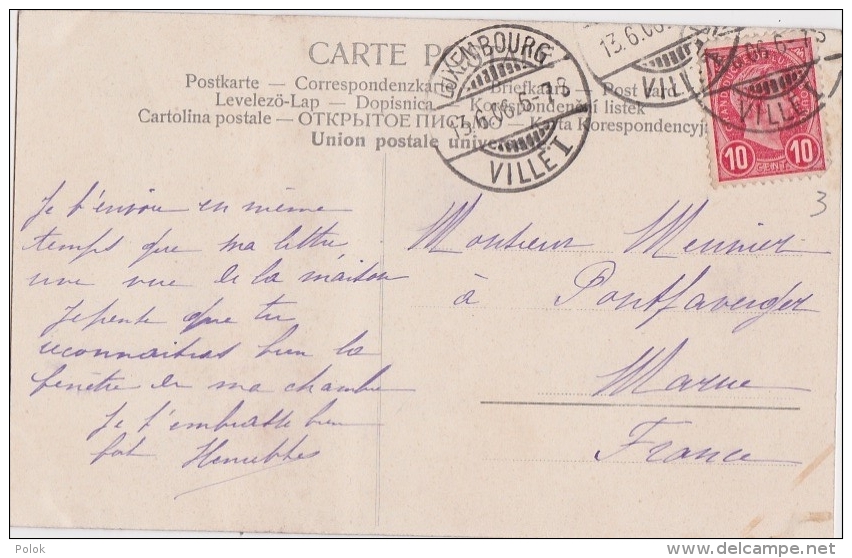 CARTE PO
Postkarte — Correspondenzkar Briefkaart — Post card
Levelező-Lap — Dopisnica — Korespondenční lístek
Cartolina postale — ОТКРЫТОЕ ПИСЬМО — Karta Korespondencyj
Union postale univer
LUXEMBOURG
13.6.06.6-7S
VILLE I
13.6.06
VILLE
06.6-7S
VILLE I
10 CENT. 10
3
Je t'envoie en même
temps que ma lettre
une vue de la maison
Je pense que tu
reconnaitras bien la
fenêtre de ma chambre
Je t'embrasse bien
fort Henriette
Monsieur Meunier
à Pontfaverger
Marne
France
Polok
delcampe.net